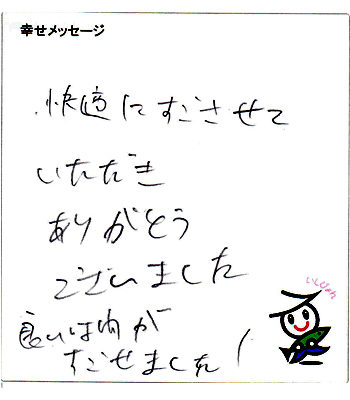 幸せメッセージ
快適にすごさせて
いただき
ありがとう
ございました
良い時間が
すごせました!